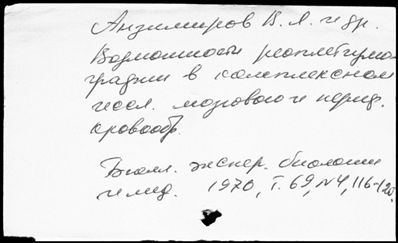 Анзимиров В. Л. и др.
Возможности реоплетизмо-
графии в комплексном
иссл. мозгового и периф.
кровообр.
Бюлл. экспер. биологии
и мед. 1970, т. 69, N4, 116-120.